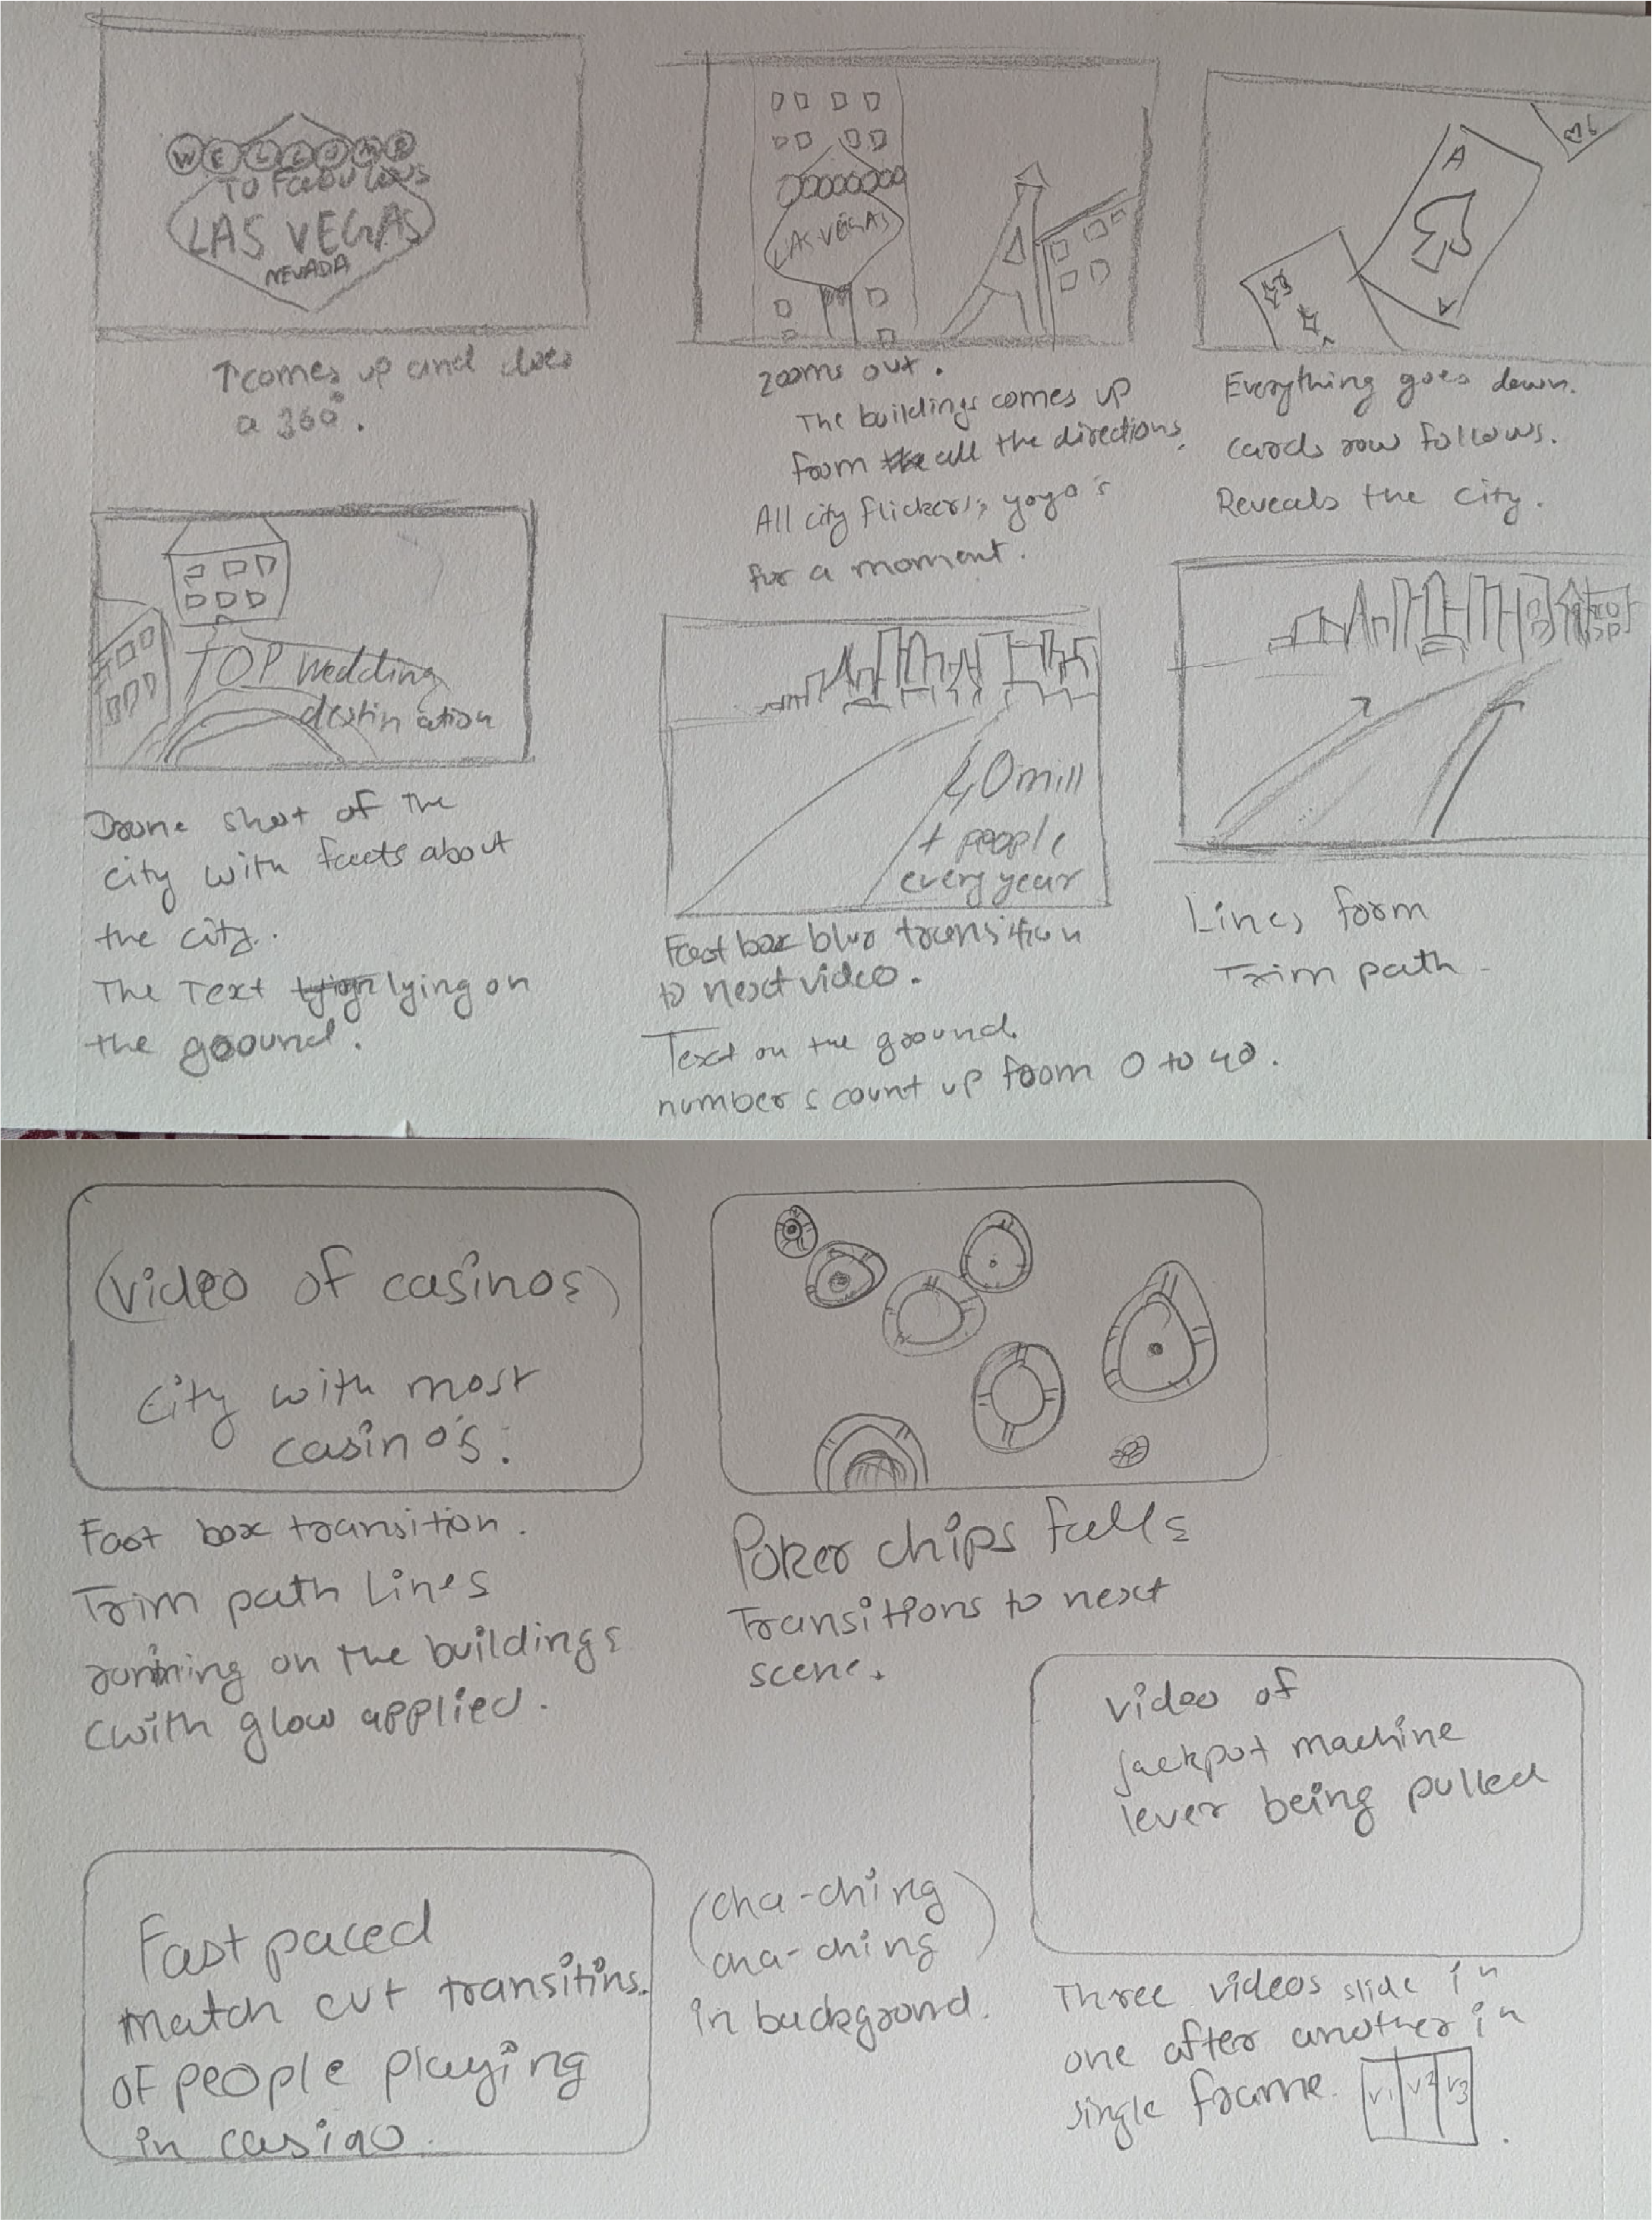 WELCOME
TO FABULOUS
LAS VEGAS
NEVADA
↑comes up and does
a 360°.
LAS VEGAS
zooms out.
The buildings comes up
from the all the directions.
All city flickers, yoyo's
for a moment.
A
Everything goes down.
cards row follows.
Reveals the city.
TOP wedding
destination
Drone shot of the
city with facts about
the city..
The Text lying on
the ground.
40mill
+ people
every year
Fast box blur transition
to next video.
Text on the ground.
numbers count up from 0 to 40.
Lines form
Trim path -
(video of casinos)
City with most
casino's.
Fast box transition.
Trim path Lines
running on the buildings
(with glow applied.
Poker chips falls
Transitions to next
scene.
video of
jackpot machine
lever being pulled
Fast paced
match cut transitins.
OF people playing
in casino.
(cha-ching
cha-ching)
in background.
Three videos slide in
one after another in
single frame.
V1 V2 V3